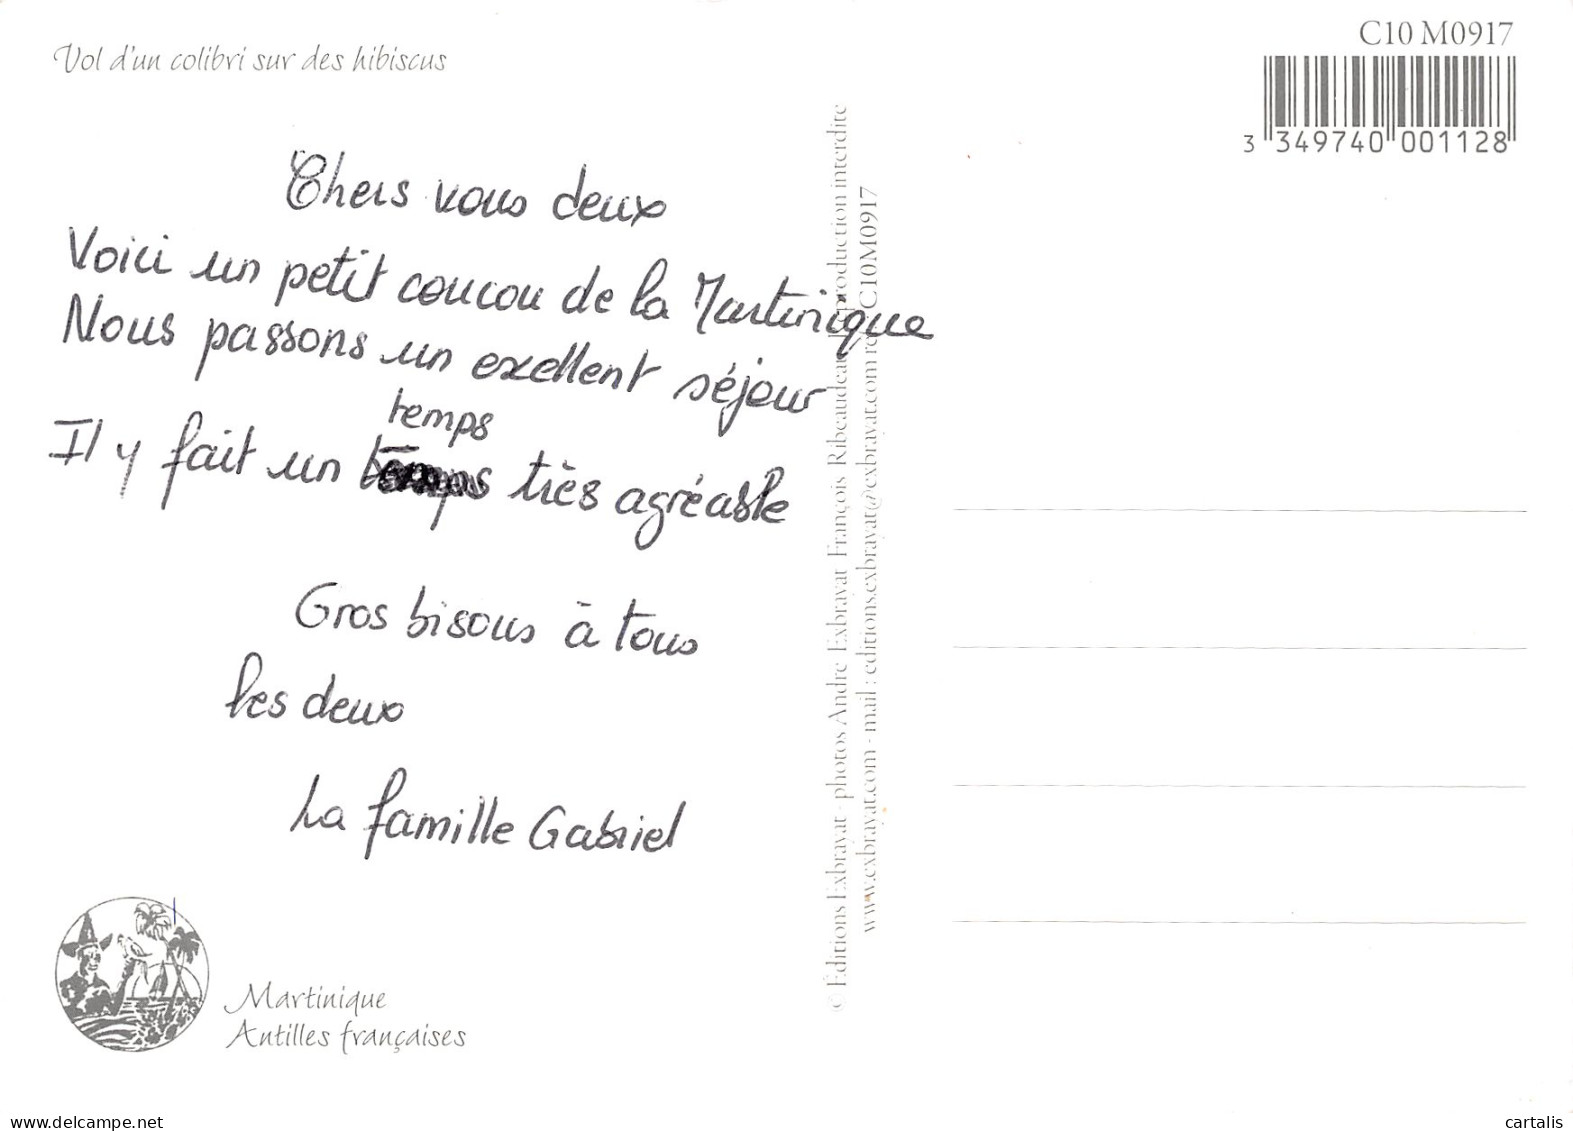 Vol d'un colibri sur des hibiscus
C10 M0917
3 349740 001128
Chers vous deux
Voici un petit coucou de la Martinique
Nous passons un exellent séjour
temps
Il y fait un temps très agréable
Gros bisous à tous
les deux
La famille Gabriel
Martinique
Antilles françaises
© Editions Exbrayat - photos André Exbrayat François Ribeaudeau reproduction interdite
www.exbrayat.com - mail : editions.exbrayat@exbrayat.com C10M0917
www.delcampe.net
cartalis